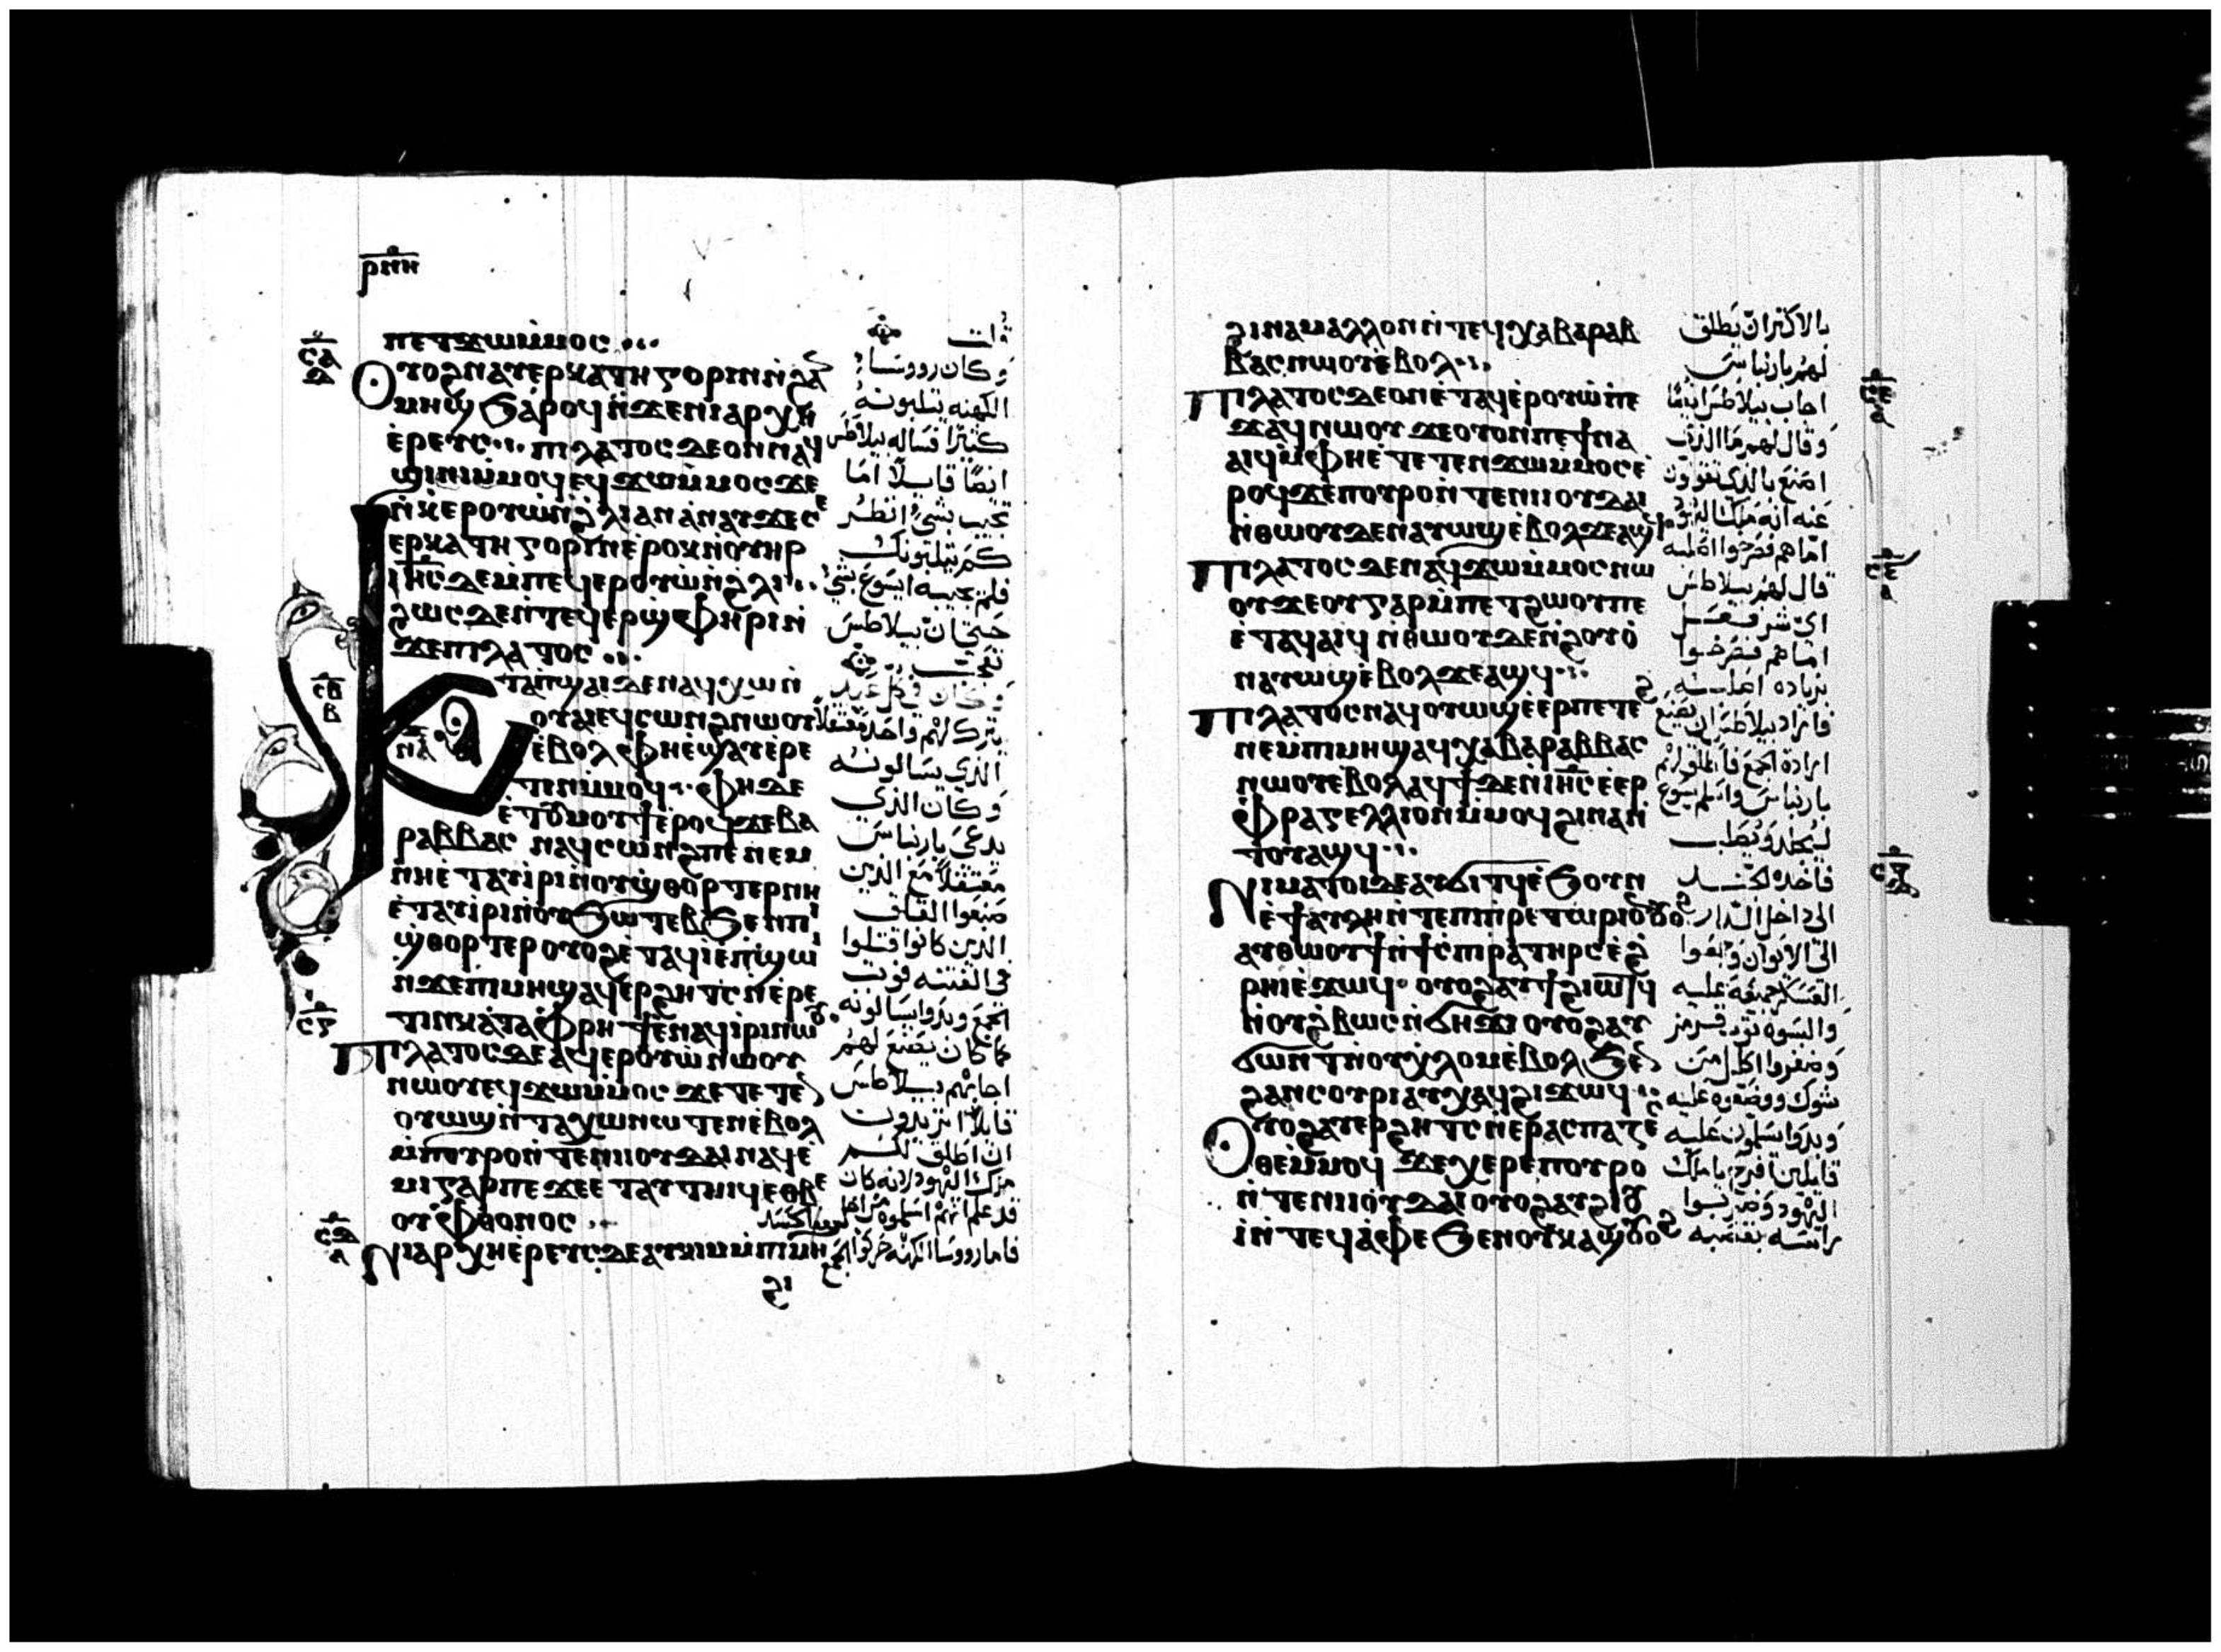 ⲣⲛⲏ
ⲡⲉⲧϫⲱⲙⲙⲟⲥ
ⲥⲁ
ⲟⲩⲟϩⲛⲁⲩⲉⲣⲕⲁⲧⲏⲅⲟⲣⲓⲛⲛϩⲁ
ⲙⲏϣϧⲁⲣⲟϥⲛϫⲉⲛⲓⲁⲣⲭⲏ
ⲉⲣⲉⲩⲥ ⲡⲓⲗⲁⲧⲟⲥⲇⲉⲟⲛⲛⲁϥ
ϣⲓⲛⲓⲙⲙⲟϥⲉϥϫⲱⲙⲙⲟⲥϫⲉ
ⲛⲕⲉⲣⲟⲩⲱⲛϩⲗⲓⲁⲛⲁⲛⲁⲩϫⲉⲥⲉ
ⲉⲣⲕⲁⲧⲏⲅⲟⲣⲓⲛⲉⲣⲟⲕⲛⲟⲩⲏⲣ
ⲓⲏⲥⲇⲉⲙⲡⲉϥⲉⲣⲟⲩⲱⲛϩⲗⲓ
ϩⲱⲥⲇⲉⲛⲧⲉϥⲉⲣϣⲫⲏⲣⲓⲛ
ϫⲉⲡⲓⲗⲁⲧⲟⲥ
ⲥⲃ
ⲃ
ⲕⲁⲧⲁⲡϣⲁⲓⲇⲉⲛⲁϥⲭⲱⲛ
ⲟⲩⲁⲓⲉϥⲥⲱⲛϩⲛⲱⲟⲩ
ⲛⲁ
ⲉⲃⲟⲗⲫⲏⲉϣⲁⲩⲉⲣⲉ
ⲧⲓⲛⲙⲙⲟϥ ⲫⲏⲇⲉ
ⲉⲧⲟⲩⲙⲟⲩϯⲉⲣⲟϥϫⲉⲃⲁ
ⲣⲁⲃⲃⲁⲥ ⲛⲁϥⲥⲱⲛϩⲡⲉⲛⲉⲙ
ⲛⲏⲉⲧⲁⲩⲓⲣⲓⲛⲟⲩϣⲑⲟⲣⲧⲉⲣⲛⲏ
ⲉⲧⲁⲩⲓⲣⲓⲛⲟⲩϧⲱⲧⲉⲃϧⲉⲛⲡⲓ
ϣⲑⲟⲣⲧⲉⲣⲟⲩⲟϩⲉⲧⲁϥⲓⲉⲡϣⲱⲓ
ⲛϫⲉⲡⲓⲙⲏϣⲁϥⲉⲣϩⲏⲧⲥⲛⲉⲣⲉ
ⲥⲅ
ⲧⲓⲛⲕⲁⲧⲁⲫⲣⲏϯⲉⲛⲁϥⲓⲣⲓⲛⲱⲟⲩ
ⲡⲓⲗⲁⲧⲟⲥⲇⲉⲁϥⲉⲣⲟⲩⲱⲛⲱⲟⲩ
ⲛⲱⲟⲩⲉϥϫⲱⲙⲙⲟⲥ ϫⲉⲧⲉⲧⲉ
ⲟⲩⲱϣⲛⲧⲁⲭⲱⲛⲱⲧⲉⲛⲉⲃⲟⲗ
ⲙⲡⲟⲩⲣⲟⲛⲧⲉⲛⲓⲓⲟⲩⲇⲁⲓⲛⲁϥⲉ
ⲙⲓⲅⲁⲣⲡⲉϫⲉⲉⲧⲁⲩⲧⲏⲓϥⲉⲑⲃⲉ
ⲟⲩⲫⲑⲟⲛⲟⲥ
ⲥⲇ
ⲛⲓⲁⲣⲭⲏⲉⲣⲉⲩⲥⲇⲉⲁⲩⲕⲓⲙⲙⲡⲓⲙⲏ
وكان رووسا
الكهنه يتلبونه
كثيرا فساله بيلاطس
ايضا قايلا اما
تجيب بشي انظر
كم يتلبونك
فلم يجيبه ايسوع بشي
حتى ان بيلاطس
الذي يسالونه
وكان الذي
يدعى بارنباس
معتقلا مع الذين
الذين كانوا قتلوا
الجمع وبدوا يسالونه
كما كان يصنع لهم
اجابهم بيلاطس
قايلا اتريدون
ان اطلق لكم
ملك اليهود لانه كان
ϩⲓⲛⲁⲙⲁⲗⲗⲟⲛⲛⲧⲉϥⲭⲁⲃⲁⲣⲁⲃ
ⲃⲁⲥⲛⲱⲟⲩⲉⲃⲟⲗ
ⲥⲉ
ⲁ
ⲡⲓⲗⲁⲧⲟⲥⲇⲉⲟⲛⲉⲧⲁϥⲉⲣⲟⲩⲱⲡⲉ
ϫⲁϥⲛⲱⲟⲩ ϫⲉⲟⲩⲟⲛⲡⲉϯⲛⲁ
ⲁⲓϥⲙⲫⲏⲉⲧⲉⲧⲉⲛϫⲱⲙⲙⲟⲥⲉ
ⲣⲟϥϫⲉⲡⲟⲩⲣⲟⲛⲧⲉⲛⲓⲓⲟⲩⲇⲁⲓ
ⲛⲑⲱⲟⲩⲇⲉⲛⲁⲩⲱϣⲉⲃⲟⲗϫⲉⲁϣϥ
ⲡⲓⲗⲁⲧⲟⲥⲇⲉⲛⲁϥϫⲱⲙⲙⲟⲥⲛⲱ
ⲟⲩϫⲉⲟⲩⲅⲁⲣⲙⲡⲉⲧϩⲱⲟⲩⲡⲉ
ⲉⲧⲁϥⲁⲓϥ ⲛⲑⲱⲟⲩⲇⲉⲛϩⲟⲩⲟ
ⲛⲁⲩⲱϣⲉⲃⲟⲗϫⲉⲁϣϥ
ⲡⲓⲗⲁⲧⲟⲥⲛⲁϥⲟⲩⲱϣⲉⲉⲣⲡⲉⲧⲉ
ⲛⲉⲙⲡⲓⲙⲏϣⲁϥⲭⲁⲃⲁⲣⲁⲃⲃⲁⲥ
ⲛⲱⲟⲩⲉⲃⲟⲗⲁϥϯⲇⲉⲛⲓⲏⲥⲉⲉⲣ
ⲫⲣⲁⲅⲉⲗⲗⲓⲟⲛⲙⲙⲟϥϩⲓⲛⲁⲛ
ⲧⲟⲩⲁϣϥ
ⲛⲓⲙⲁⲧⲟⲓⲇⲉⲁⲩϭⲓⲧϥⲉϧⲟⲩⲛ
ⲉϯⲁⲩⲗⲏⲛⲧⲉⲡⲓⲡⲣⲉⲧⲱⲣⲓⲟⲛ
ⲁⲩⲑⲱⲟⲩϯⲛϯⲥⲡⲓⲣⲁⲧⲏⲣⲥⲉϩ
ⲣⲏⲓⲉϫⲱϥ ⲟⲩⲟϩⲁⲩϯϩⲓⲱⲧϥ
ⲛⲟⲩϩⲃⲱⲥⲛϭⲏϫⲓ ⲟⲩⲟϩⲁⲩ
ϭⲱⲛⲧⲛⲟⲩⲭⲗⲟⲙⲉⲃⲟⲗϧⲉ
ϩⲁⲛⲥⲟⲩⲣⲓⲁⲩⲭⲁϥϩⲓϫⲱϥ
ⲟⲩⲟϩⲁⲩⲉⲣϩⲏⲧⲥⲛⲉⲣⲁⲥⲡⲁⲍⲉ
ⲑⲉⲙⲙⲟϥ ϫⲉⲭⲉⲣⲉⲡⲟⲩⲣⲟ
ⲛⲧⲉⲛⲓⲓⲟⲩⲇⲁⲓⲟⲩⲟϩⲁⲩϩⲓⲟⲩ
ⲓⲛⲧⲉϥⲁⲫⲉϧⲉⲛⲟⲩⲕⲁϣ
بالاكثر ان يطلق
لهم بارنباس
اجاب بيلاطس ايضا
وقال لهم ما الذي
عنه انه ملك اليهود
قال لهم بيلاطس
اي شر فعل
اما هم فصرخوا
بزياده اصلبه
ليجلد ويصلب
الى داخل الدار
وضفروا اكليل من
شوك ووضعوه عليه
وبدوا يسلمون عليه
قايلين افرح يا ملك
اليهود وضربوا
راسه بقصبه